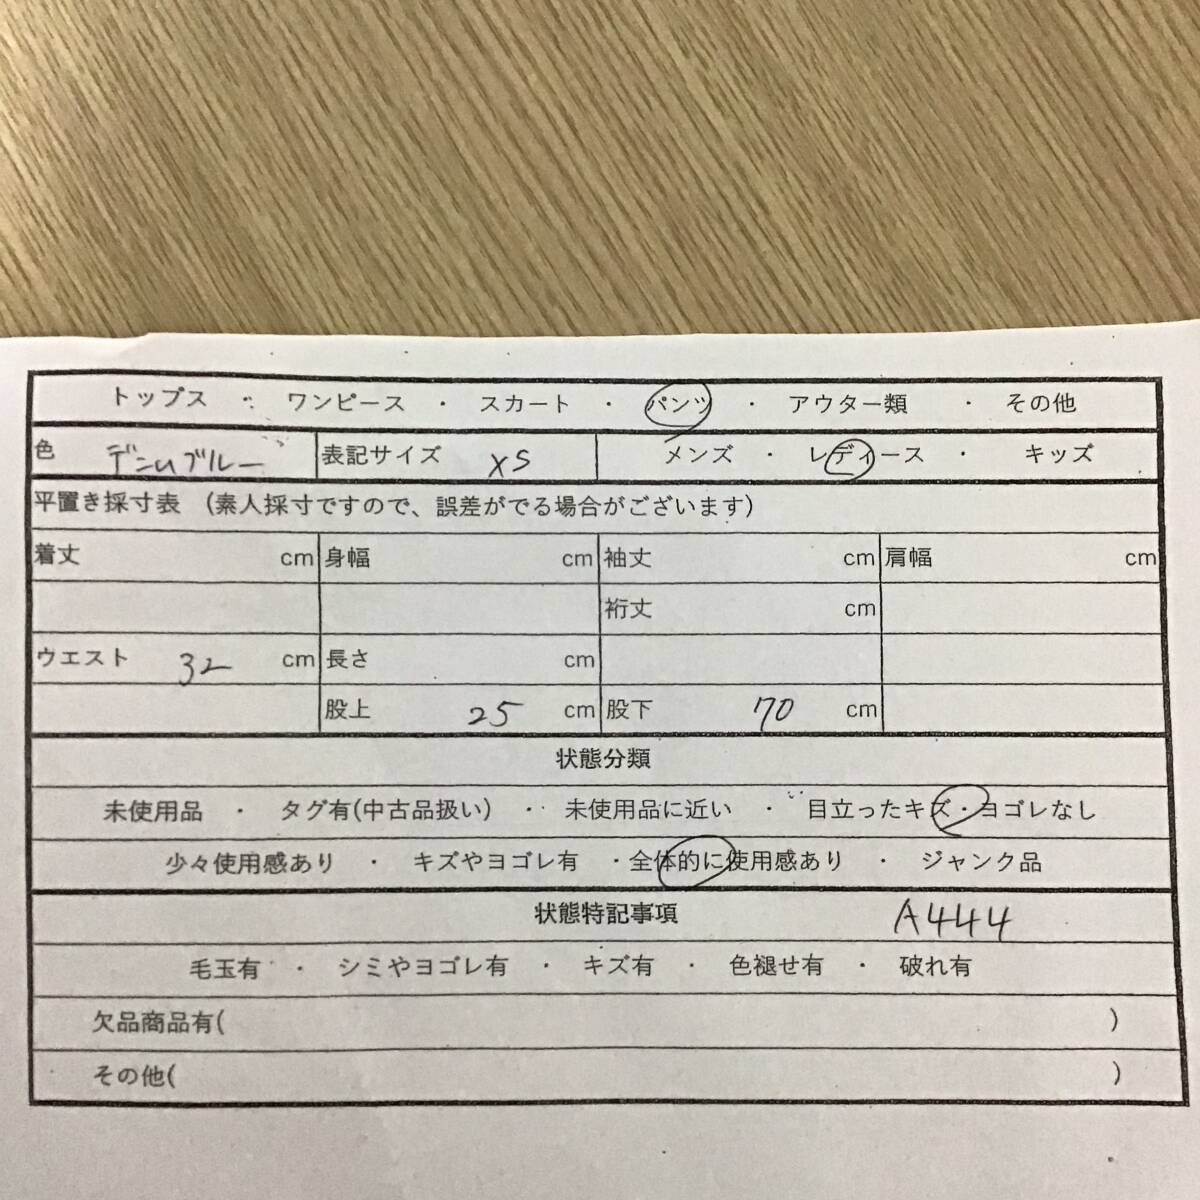 トップス ・ ワンピース ・ スカート ・ パンツ ・ アウター類 ・ その他
色 デニムブルー 表記サイズ XS メンズ ・ レディース ・ キッズ
平置き採寸表 (素人採寸ですので、誤差がでる場合がございます)
着丈 cm 身幅 cm 袖丈 cm 肩幅 cm
裄丈 cm
ウエスト 32 cm 長さ cm
股上 25 cm 股下 70 cm
状態分類
未使用品 ・ タグ有(中古品扱い) ・ 未使用品に近い ・ 目立ったキズ・ヨゴレなし
少々使用感あり ・ キズやヨゴレ有 ・全体的に使用感あり ・ ジャンク品
状態特記事項 A444
毛玉有 ・ シミやヨゴレ有 ・ キズ有 ・ 色褪せ有 ・ 破れ有
欠品商品有( )
その他( )